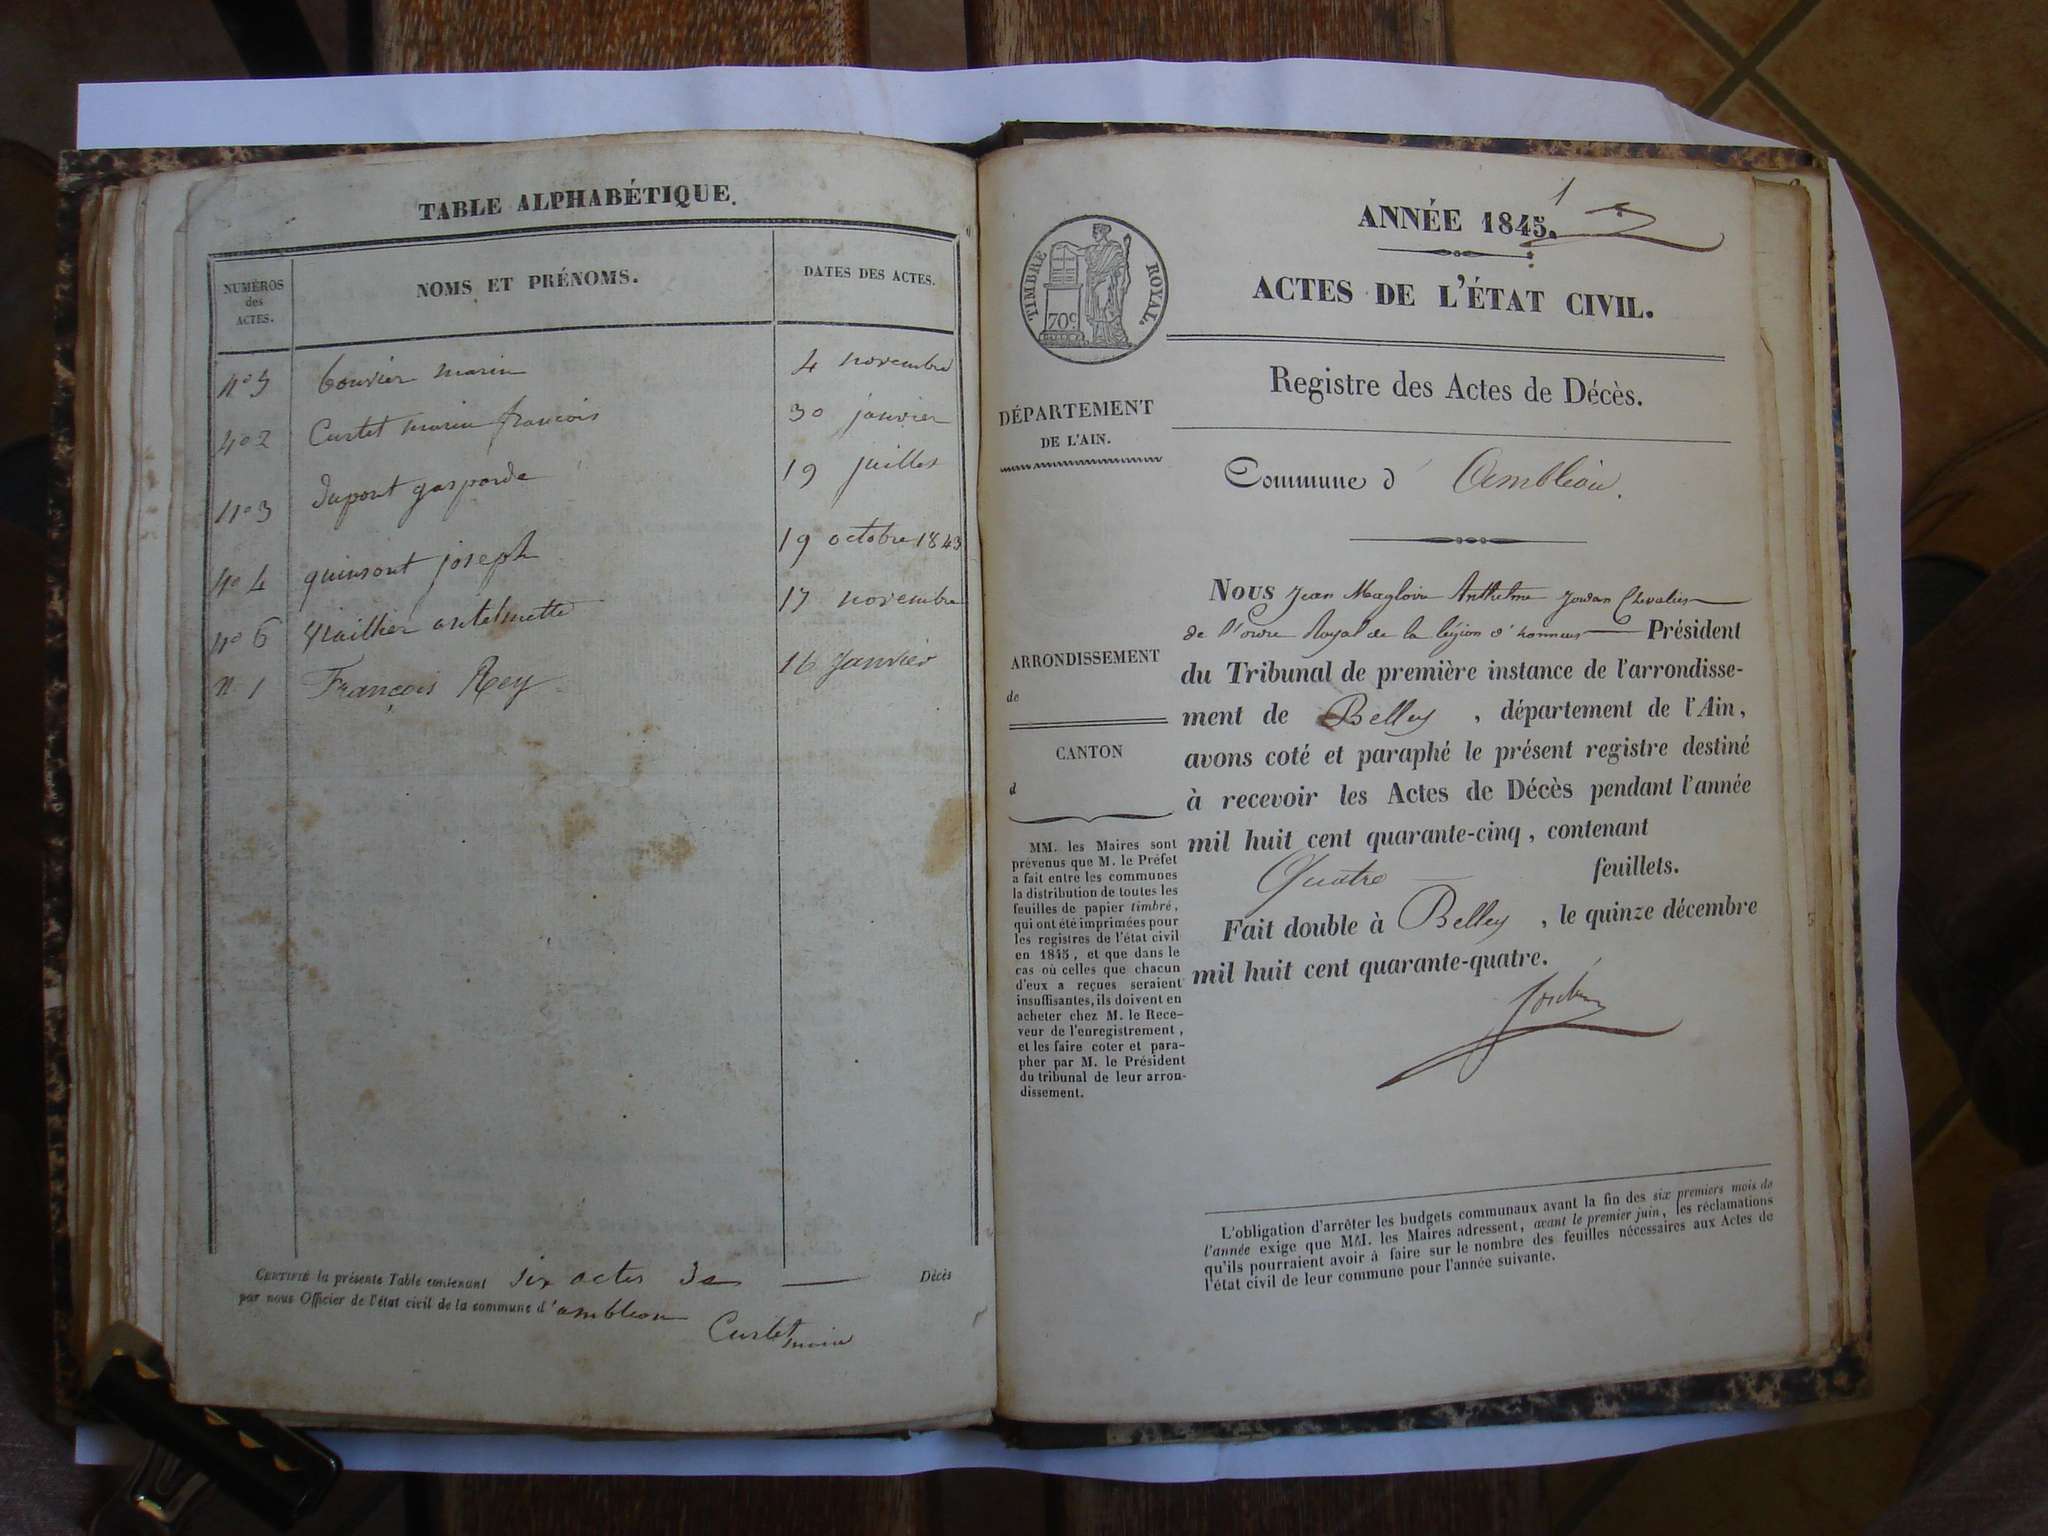 TABLE ALPHABÉTIQUE.
NUMÉROS des ACTES. NOMS ET PRÉNOMS. DATES DES ACTES.
no 5 bouvier marin 4 novembre
no 2 Curtet marin françois 30 janvier
no 3 dupont gasparde 19 juillet
no 4 quinsont joseph 19 octobre 1843
no 6 antelmette 17 novembre
n. 1 François Rey 16 Janvier
CERTIFIÉ la présente Table contenant six actes de Décès
par nous Officier de l'état civil de la commune d'ambleon
Curtet maire
1
ANNÉE 1845.
ACTES DE L'ÉTAT CIVIL.
TIMBRE ROYAL.
70c
Registre des Actes de Décès.
DÉPARTEMENT
DE L'AIN.
Commune d'Ambléon.
NOUS Jean Magloire Anthelme Jordan Chevalier
de l'ordre Royal de la légion d'honneur Président
du Tribunal de première instance de l'arrondisse-
ment de Belley, département de l'Ain,
avons coté et paraphé le présent registre destiné
à recevoir les Actes de Décès pendant l'année
mil huit cent quarante-cinq, contenant
Quatre feuillets.
Fait double à Belley, le quinze décembre
mil huit cent quarante-quatre.
Jordan
ARRONDISSEMENT
de
CANTON
d
MM. les Maires sont
prévenus que M. le Préfet
a fait entre les communes
la distribution de toutes les
feuilles de papier timbré,
qui ont été imprimées pour
les registres de l'état civil
en 1845, et que dans le
cas où celles que chacun
d'eux a reçues seraient
insuffisantes, ils doivent en
acheter chez M. le Rece-
veur de l'enregistrement,
et les faire coter et para-
pher par M. le Président
du tribunal de leur arron-
dissement.
L'obligation d'arrêter les budgets communaux avant la fin des six premiers mois de
l'année exige que MM. les Maires adressent, avant le premier juin, les réclamations
qu'ils pourraient avoir à faire sur le nombre des feuilles nécessaires aux Actes de
l'état civil de leur commune pour l'année suivante.